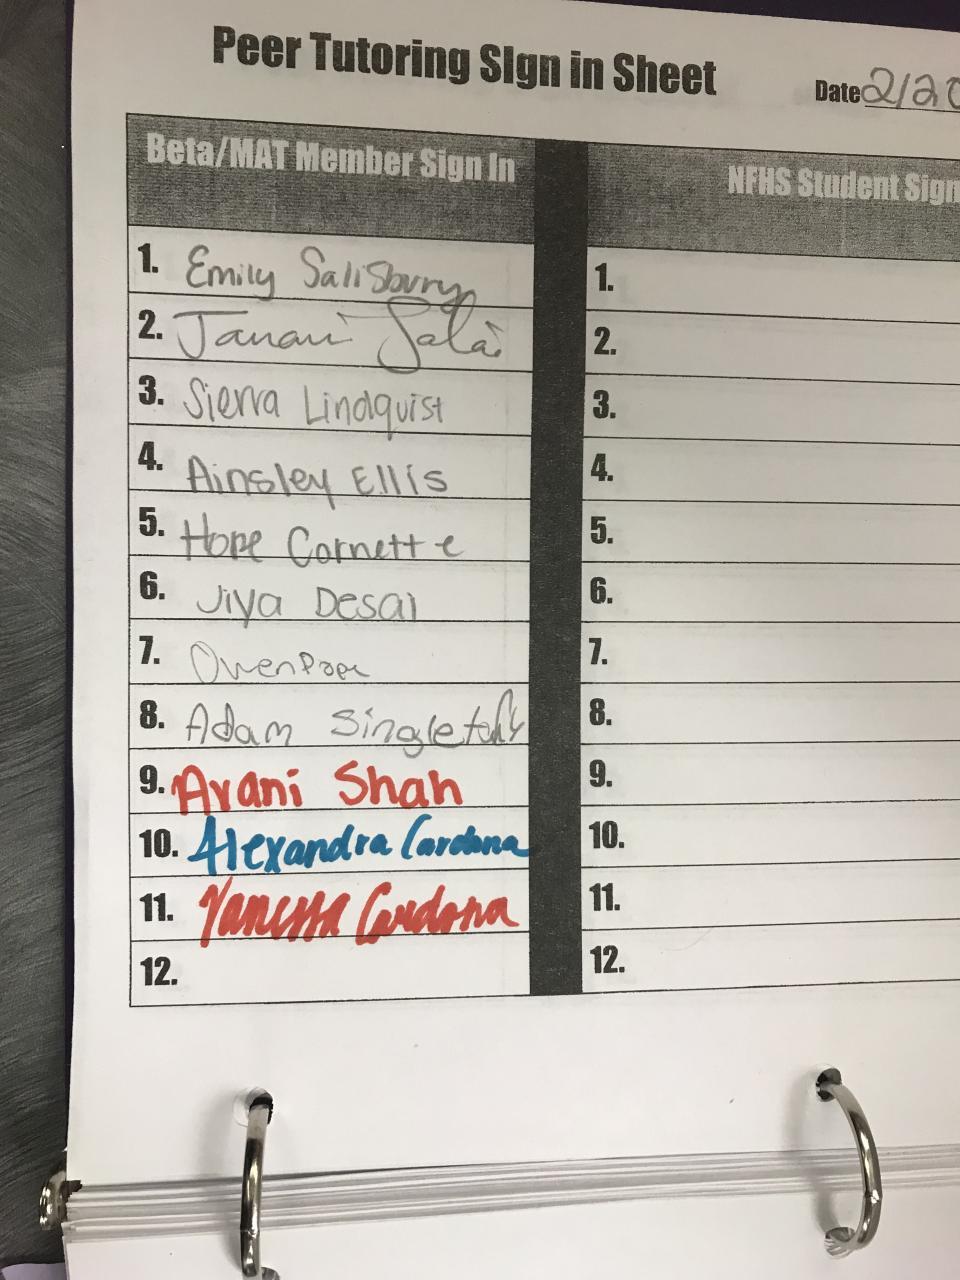 Peer Tutoring SIgn in Sheet
Date 2/20
Beta/MAT Member Sign In
NFHS Student Sign
1. Emily Salisbury
2. Janani
3. Sierra Lindquist
4. Ainsley Ellis
5. Hope Cornette
6. Jiya Desai
7. Owen
8. Adam Singletary
9. Avani Shah
10. Alexandra Cardona
11. Vanessa Cardona
12.
1.
2.
3.
4.
5.
6.
7.
8.
9.
10.
11.
12.